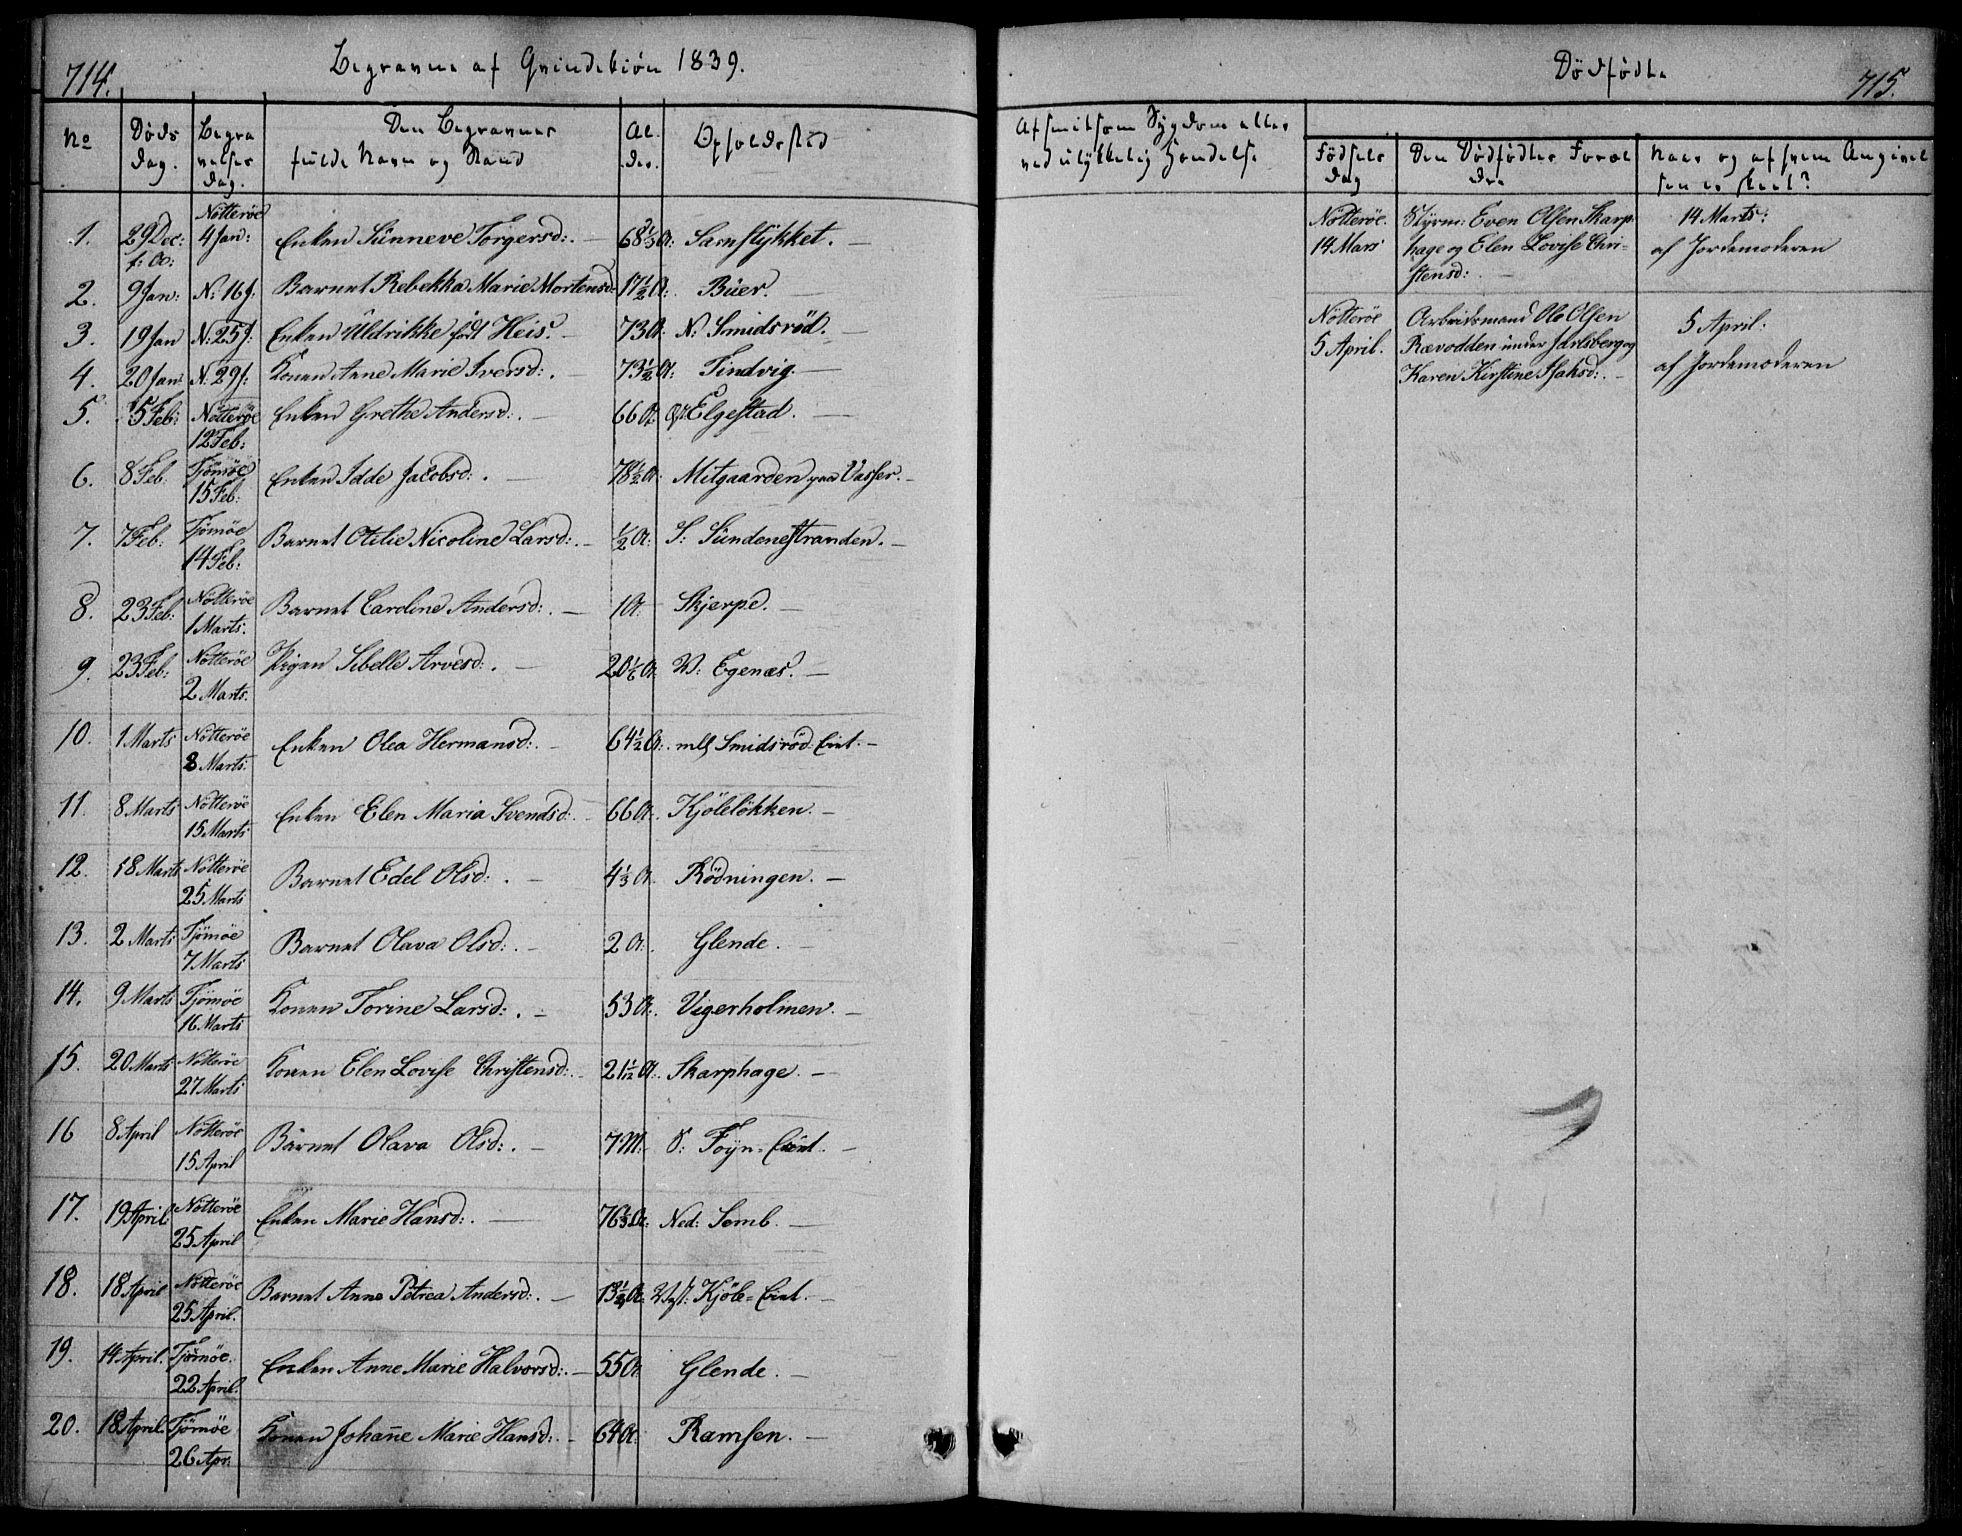 714.
Begravne af Qvindekiøn 1839.
No
Døds
dag.
Begra
velses
dag.
Den Begravnes
fulde Navn og Stand
Al
der.
Opholdssted
1. 29 Dec: f: A: Nøtterøe 4 Jan: Enken Sünneve Torgersd:. 68 A: Sarnstykket.
2. 9 Jan: N: 16 J: Barnet Rebekka Marie Mortensd: 17½ A: Büer.
3. 19 Jan N: 25 J: Enken Uldrikke født Heis. 73 A: N: Smidsrød.
4. 20 Jan: N. 29 J: Konen Anne Marie Iversd:. 73½ A: Tindvig.
5. 5 Feb: Nøtterøe 12 Feb: Enken Grethe Andersd:. 66 A: Elgestad.
6. 8 Feb. Tjømøe 15 Feb: Enken Idde Jacobsd:. 78½ A: Mitgaarden paa Vasser.
7. 7 Feb: Tjømøe 14 Feb: Barnet Otilie Nicoline Larsd:. ½ A: S: Sündenestranden.
8. 23 Feb: Nøtterøe 1 Marts: Barnet Caroline Andersd:. 1 A: Skjerpe.
9. 23 Feb: Nøtterøe 2 Marts. Pigen Sibelle Arvesd:. 20⅙ A: W: Egenæs.
10. 1 Marts Nøtterøe 8 Marts. Enken Olea Hermansd:. 64½ A: mlf Smidsrød Eiet.
11. 8 Marts Nøtterøe 15 Marts Enken Elen Maria Svendsd: 66 A: Kjøleløkken.
12. 18 Marts Nøtterøe 25 Marts Barnet Edel Olsd:. 4⅓ A. Rødningen.
13. 2 Marts Tjømøe 7 Marts Barnet Olava Olsd:. 2 A: Glende.
14. 9 Marts Tjømøe 16 Marts Konen Torine Larsd:. 53 A: Vigerholmen.
15. 20 Marts Nøtterøe 27 Marts Konen Elen Lovise Christensd:. 21 1/12 A: Skarphage.
16 8 April Nøtterøe 15 April Barnet Olava Olsd:. 7 M: S: Foyn-Eiet.
17. 19 April Nøtterøe 25 April Enken Marie Hansd:. 76⅓ A: Ned: Semb.
18. 18 April Nøtterøe 25 April. Barnet Anne Petrea Andersd:. 13½ A: Vest: Kjøle-Eiet.
19. 14 April. Tjømøe 22 April. Enken Anne Marie Halvorsd:. 55 A: Glende.
20. 18 April. Tjømøe 26 Apr: Konen Johanne Marie Hansd:. 64 A: Ramsen.
Dødfødte
715.
Af smitsom Sygdom eller
ved ulykkelig Hendelse
Fødsels
dag
Den Dødfødtes Foræl
dre
Naar og af hvem Angivel
sen er skeet?
Nøtterøe. Styrm: Even Olsen Skarp 14 Marts:
14 Mars hage og Elen Lovise Chri- af Jordemoderen
stensd:.
Nøtterøe Arbeidsmand Ole Olsen 5 April:
5 April. Rævodden under Jarlsberg og
Karen Kirstine Isaksd:. af Jordemoderen